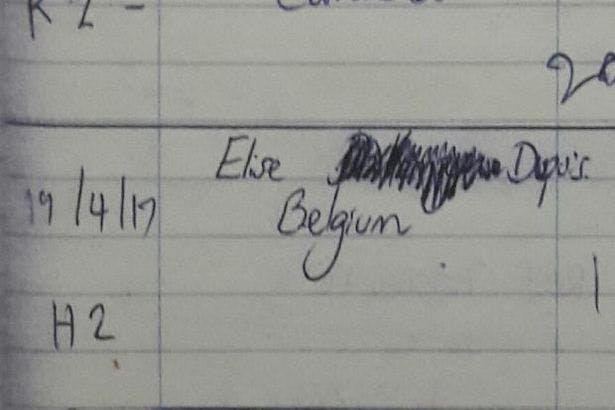 K 2 -
Elise Dupuis
19/4/17 Belgium
1
H 2